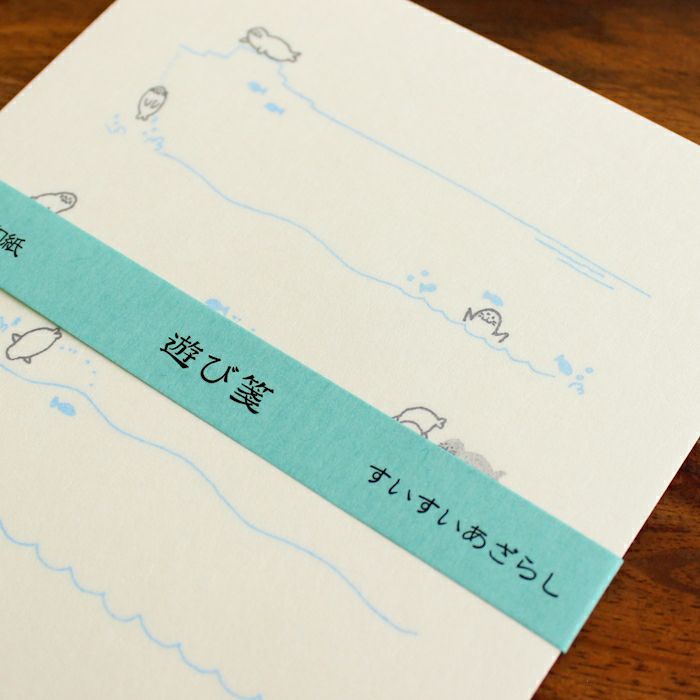 紙
遊び箋
すいすいあざらし